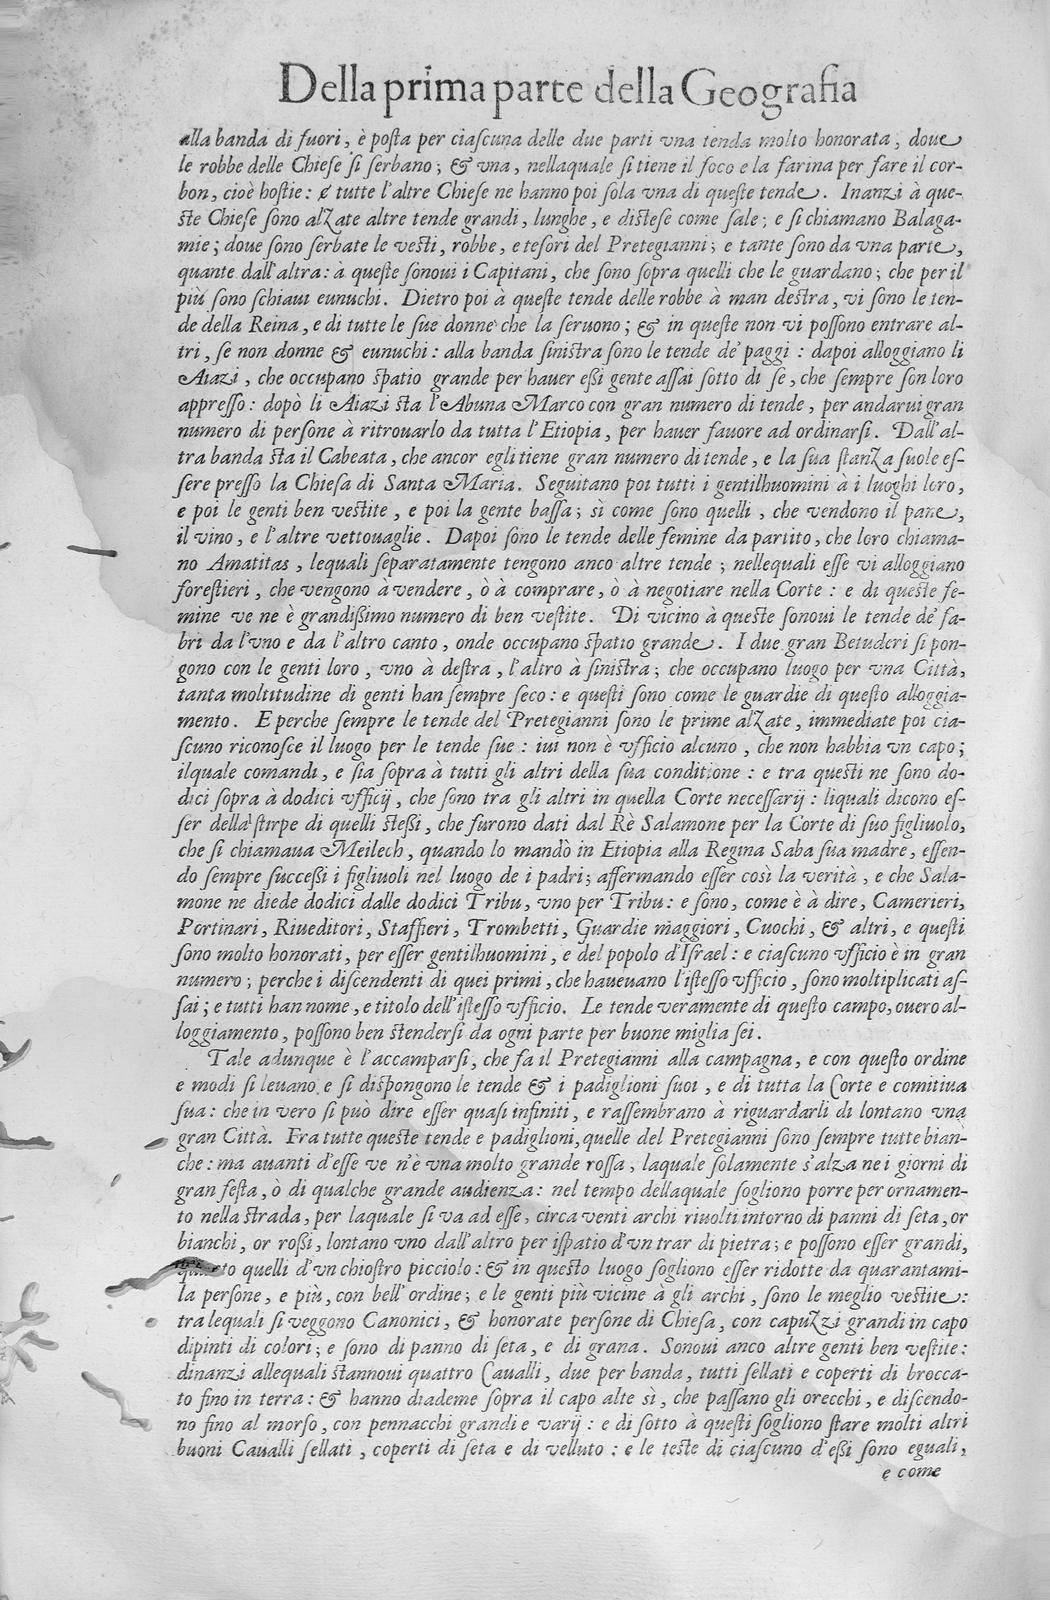 Della prima parte della Geografia
alla banda di fuori, è poſta per ciaſcuna delle due parti vna tenda molto honorata, doue
le robbe delle Chieſe ſi ſerbano; & vna, nellaquale ſi tiene il foco e la farina per fare il cor-
bon, cioè hoſtie: & tutte l'altre Chieſe ne hanno poi ſola vna di queſte tende. Inanzi à que-
ſte Chieſe ſono alzate altre tende grandi, lunghe, e diſteſe come ſale; e ſi chiamano Balaga-
mie; doue ſono ſerbate le veſti, robbe, e teſori del Pretegianni; e tante ſono da vna parte,
quante dall'altra: à queſte ſonoui i Capitani, che ſono ſopra quelli che le guardano; che per il
più ſono ſchiaui eunuchi. Dietro poi à queſte tende delle robbe à man deſtra, vi ſono le ten-
de della Reina, e di tutte le ſue donne che la ſeruono; & in queſte non vi poſſono entrare al-
tri, ſe non donne & eunuchi: alla banda ſiniſtra ſono le tende de' paggi: dapoi alloggiano li
Aiazi, che occupano ſpatio grande per hauer eßi gente aſſai ſotto di ſe, che ſempre ſon loro
appreſſo: dopò li Aiazi ſta l'Abuna Marco con gran numero di tende, per andarui gran
numero di perſone à ritrouarlo da tutta l'Etiopia, per hauer fauore ad ordinarſi. Dall'al-
tra banda ſta il Cabeata, che ancor egli tiene gran numero di tende, e la ſua ſtanza ſuole eſ-
ſere preſſo la Chieſa di Santa Maria. Seguitano poi tutti i gentilhuomini à i luoghi loro,
e poi le genti ben veſtite, e poi la gente baſſa; sì come ſono quelli, che vendono il pane,
il vino, e l'altre vettouaglie. Dapoi ſono le tende delle femine da partito, che loro chiama-
no Amatitas, lequali ſeparatamente tengono anco altre tende; nellequali eſſe vi alloggiano
foreſtieri, che vengono à vendere, ò à comprare, ò à negotiare nella Corte: e di queſte fe-
mine ve ne è grandißimo numero di ben veſtite. Di vicino à queſte ſonoui le tende de' fa-
bri da l'vno e da l'altro canto, onde occupano ſpatio grande. I due gran Betuderi ſi pon-
gono con le genti loro, vno à deſtra, l'altro à ſiniſtra; che occupano luogo per vna Città,
tanta moltitudine di genti han ſempre ſeco: e queſti ſono come le guardie di queſto alloggia-
mento. E perche ſempre le tende del Pretegianni ſono le prime alzate, immediate poi cia-
ſcuno riconoſce il luogo per le tende ſue: iui non è vfficio alcuno, che non habbia vn capo;
ilquale comandi, e ſia ſopra à tutti gli altri della ſua conditione: e tra queſti ne ſono do-
dici ſopra à dodici vfficij, che ſono tra gli altri in quella Corte neceſſarij: liquali dicono eſ-
ſer della ſtirpe di quelli ſteßi, che furono dati dal Rè Salamone per la Corte di ſuo figliuolo,
che ſi chiamaua Meilech, quando lo mandò in Etiopia alla Regina Saba ſua madre, eſſen-
do ſempre ſucceßi i figliuoli nel luogo de i padri; affermando eſſer così la verità, e che Sala-
mone ne diede dodici dalle dodici Tribu, vno per Tribu: e ſono, come è à dire, Camerieri,
Portinari, Riueditori, Staffieri, Trombetti, Guardie maggiori, Cuochi, & altri, e queſti
ſono molto honorati, per eſſer gentilhuomini, e del popolo d'Iſrael: e ciaſcuno vfficio è in gran
numero; perche i diſcendenti di quei primi, che haueuano l'iſteſſo vfficio, ſono moltiplicati aſ-
ſai; e tutti han nome, e titolo dell'iſteſſo vfficio. Le tende veramente di queſto campo, ouero al-
loggiamento, poſſono ben ſtenderſi da ogni parte per buone miglia ſei.
Tale adunque è l'accamparſi, che fa il Pretegianni alla campagna, e con queſto ordine
e modi ſi leuano e ſi diſpongono le tende & i padiglioni ſuoi, e di tutta la Corte e comitiua
ſua: che in vero ſi può dire eſſer quaſi infiniti, e raſſembrano à riguardarli di lontano vna
gran Città. Fra tutte queſte tende e padiglioni, quelle del Pretegianni ſono ſempre tutte bian-
che: ma auanti d'eſſe ve n'è vna molto grande roſſa, laquale ſolamente s'alza nei giorni di
gran feſta, ò di qualche grande audienza: nel tempo dellaquale ſogliono porre per ornamen-
to nella ſtrada, per laquale ſi va ad eſſe, circa venti archi riuolti intorno di panni di ſeta, or
bianchi, or roßi, lontano vno dall'altro per iſpatio d'vn trar di pietra; e poſſono eſſer grandi,
quanto quelli d'vn chioſtro picciolo: & in queſto luogo ſogliono eſſer ridotte da quarantami-
la perſone, e più, con bell'ordine; e le genti più vicine à gli archi, ſono le meglio veſtite:
tra lequali ſi veggono Canonici, & honorate perſone di Chieſa, con capuzzi grandi in capo
dipinti di colori; e ſono di panno di ſeta, e di grana. Sonoui anco altre genti ben veſtite:
dinanzi allequali ſtannoui quattro Caualli, due per banda, tutti ſellati e coperti di brocca-
to fino in terra: & hanno diademe ſopra il capo alte sì, che paſſano gli orecchi, e diſcendo-
no fino al morſo, con pennacchi grandi e varij: e di ſotto à queſti ſogliono ſtare molti altri
buoni Caualli ſellati, coperti di ſeta e di velluto: e le teſte di ciaſcuno d'eßi ſono eguali,
e come